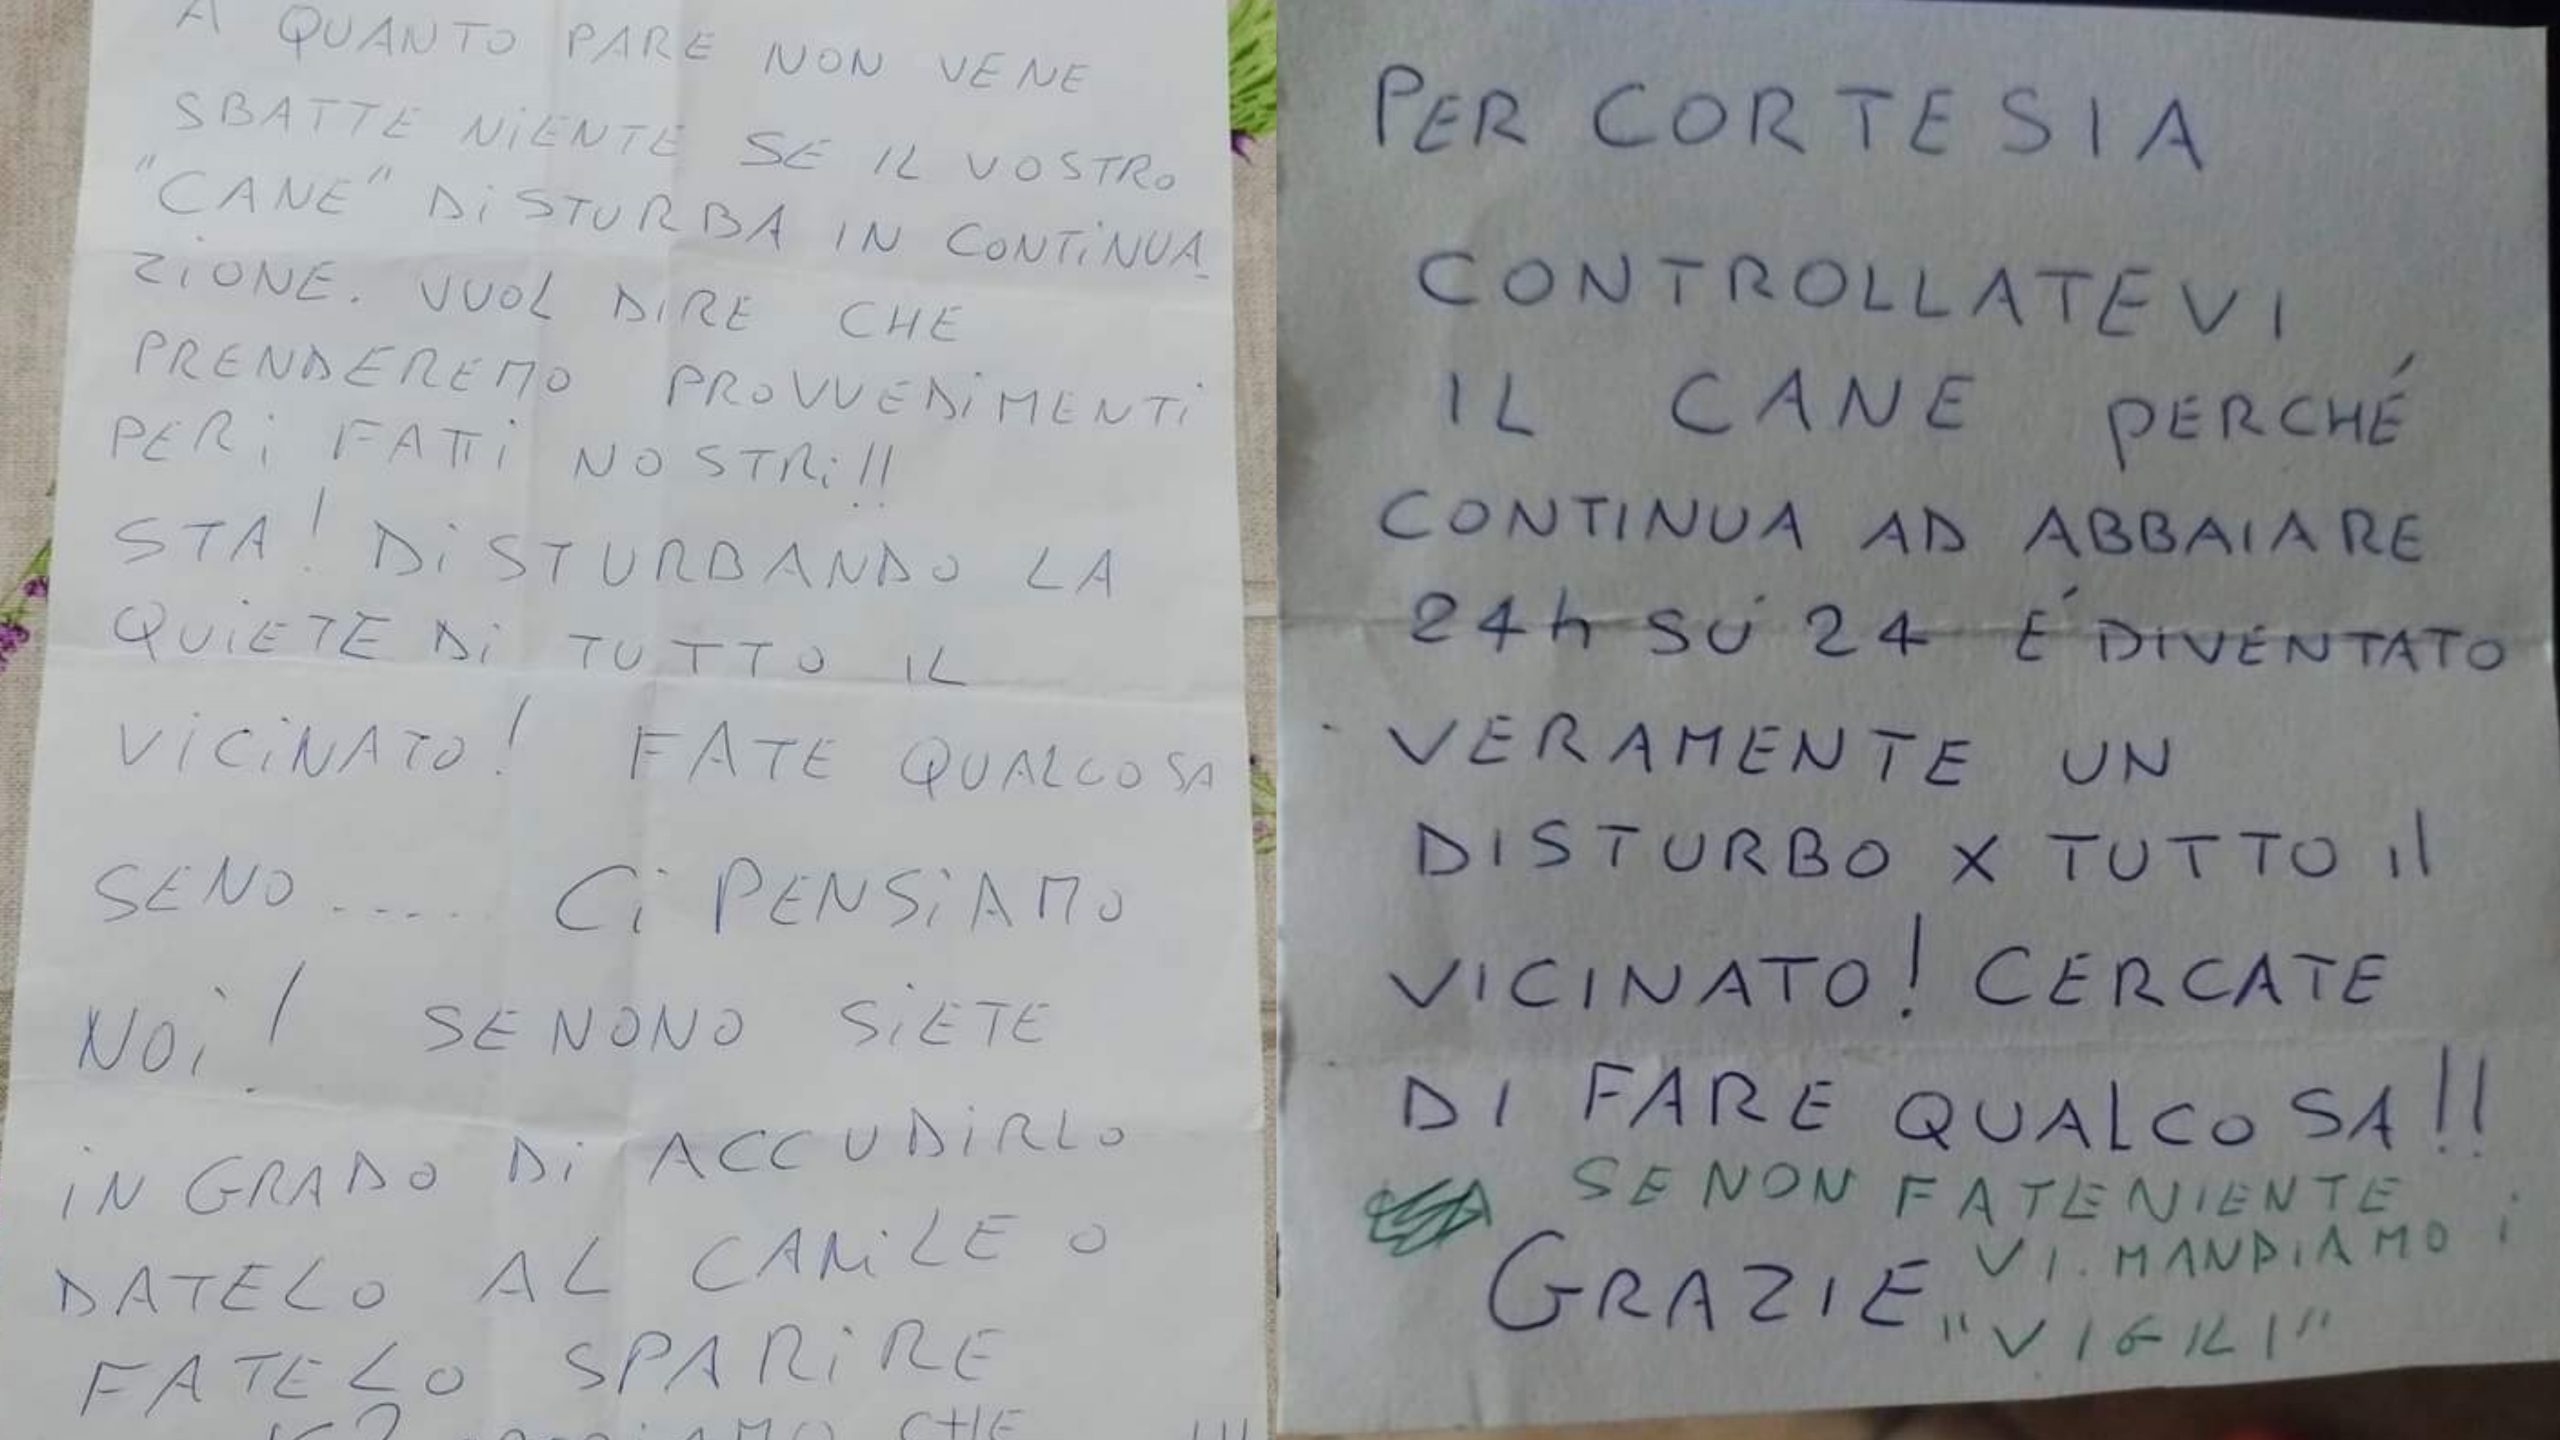 A QUANTO PARE NON VENE
SBATTE NIENTE SE IL VOSTRO
"CANE" DISTURBA IN CONTINUA
ZIONE. VUOL DIRE CHE
PRENDEREMO PROVVEDIMENTI
PERI FATTI NOSTRI!!
STA! DISTURBANDO LA
QUIETE DI TUTTO IL
VICINATO! FATE QUALCOSA
SENO ..... CI PENSIAMO
NOI! SENONO SIETE
IN GRADO DI ACCUDIRLO
DATELO AL CANILE O
FATELO SPARIRE
CHE
PER CORTESIA
CONTROLLATEVI
IL CANE PERCHÉ
CONTINUA AD ABBAIARE
24h SU' 24 É DIVENTATO
VERAMENTE UN
DISTURBO X TUTTO il
VICINATO! CERCATE
DI FARE QUALCOSA!!
SE NON FATE NIENTE
VI. MANDIAMO i
GRAZIE "VIGILI"